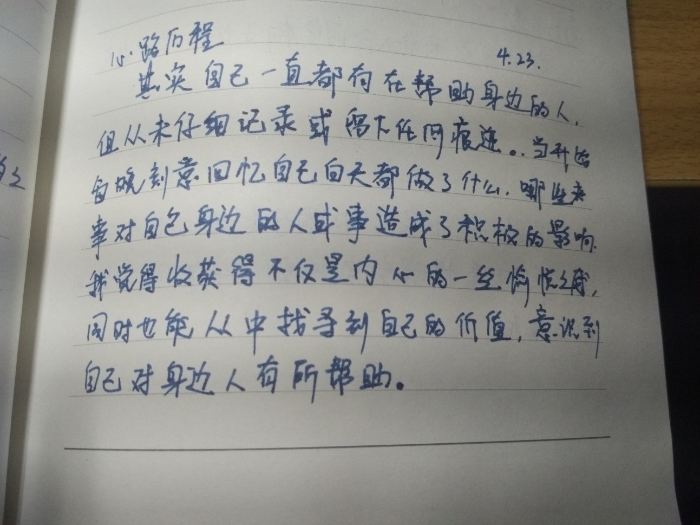 心路历程
4.23.
其实自己一直都有在帮助身边的人,
但从未仔细记录或留下任何痕迹。当开始
每晚刻意回忆自己白天都做了什么,哪些
事对自己身边的人或事造成了积极的影响
我觉得收获得不仅是内心的一丝愉悦之感,
同时也能从中找寻到自己的价值,意识到
自己对身边人有所帮助。